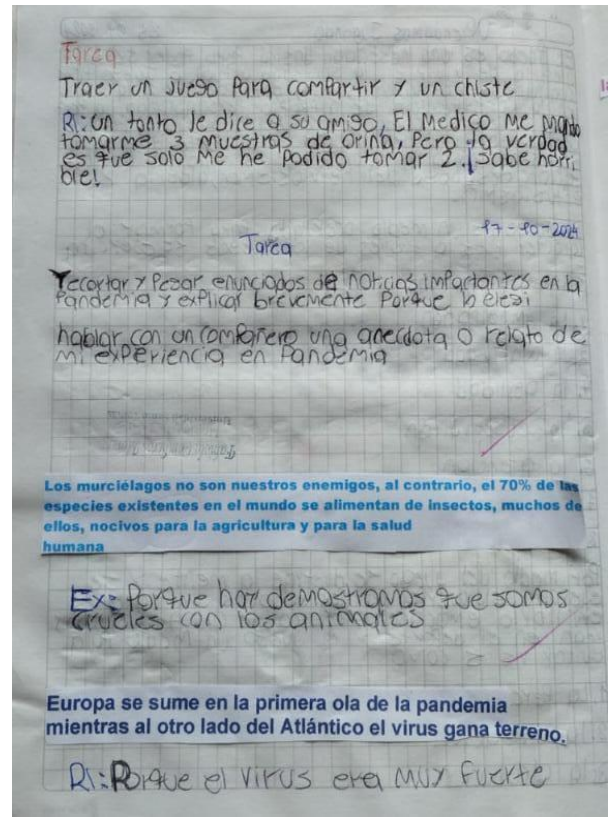 Tarea
Traer un juego Para compartir y un chiste
R: un tonto le dice a su amigo, El Medico Me Mando
tomarme 3 muestras de orina, Pero la verdad
es que solo Me he Podido tomar 2. ¡Sabe horri
ble!
17-10-2024
Tarea
recortar y Pegar enunciados de noticias impactantes en la
Pandemia y explicar brevemente Porque lo elegi
hablar con un compañero una anecdota o relato de
mi experiencia en Pandemia
Los murciélagos no son nuestros enemigos, al contrario, el 70% de las
especies existentes en el mundo se alimentan de insectos, muchos de
ellos, nocivos para la agricultura y para la salud
humana
Ex: Porque hay demostramos que somos
crueles con los animales
Europa se sume en la primera ola de la pandemia
mientras al otro lado del Atlántico el virus gana terreno.
R: Porque el virus era muy fuerte